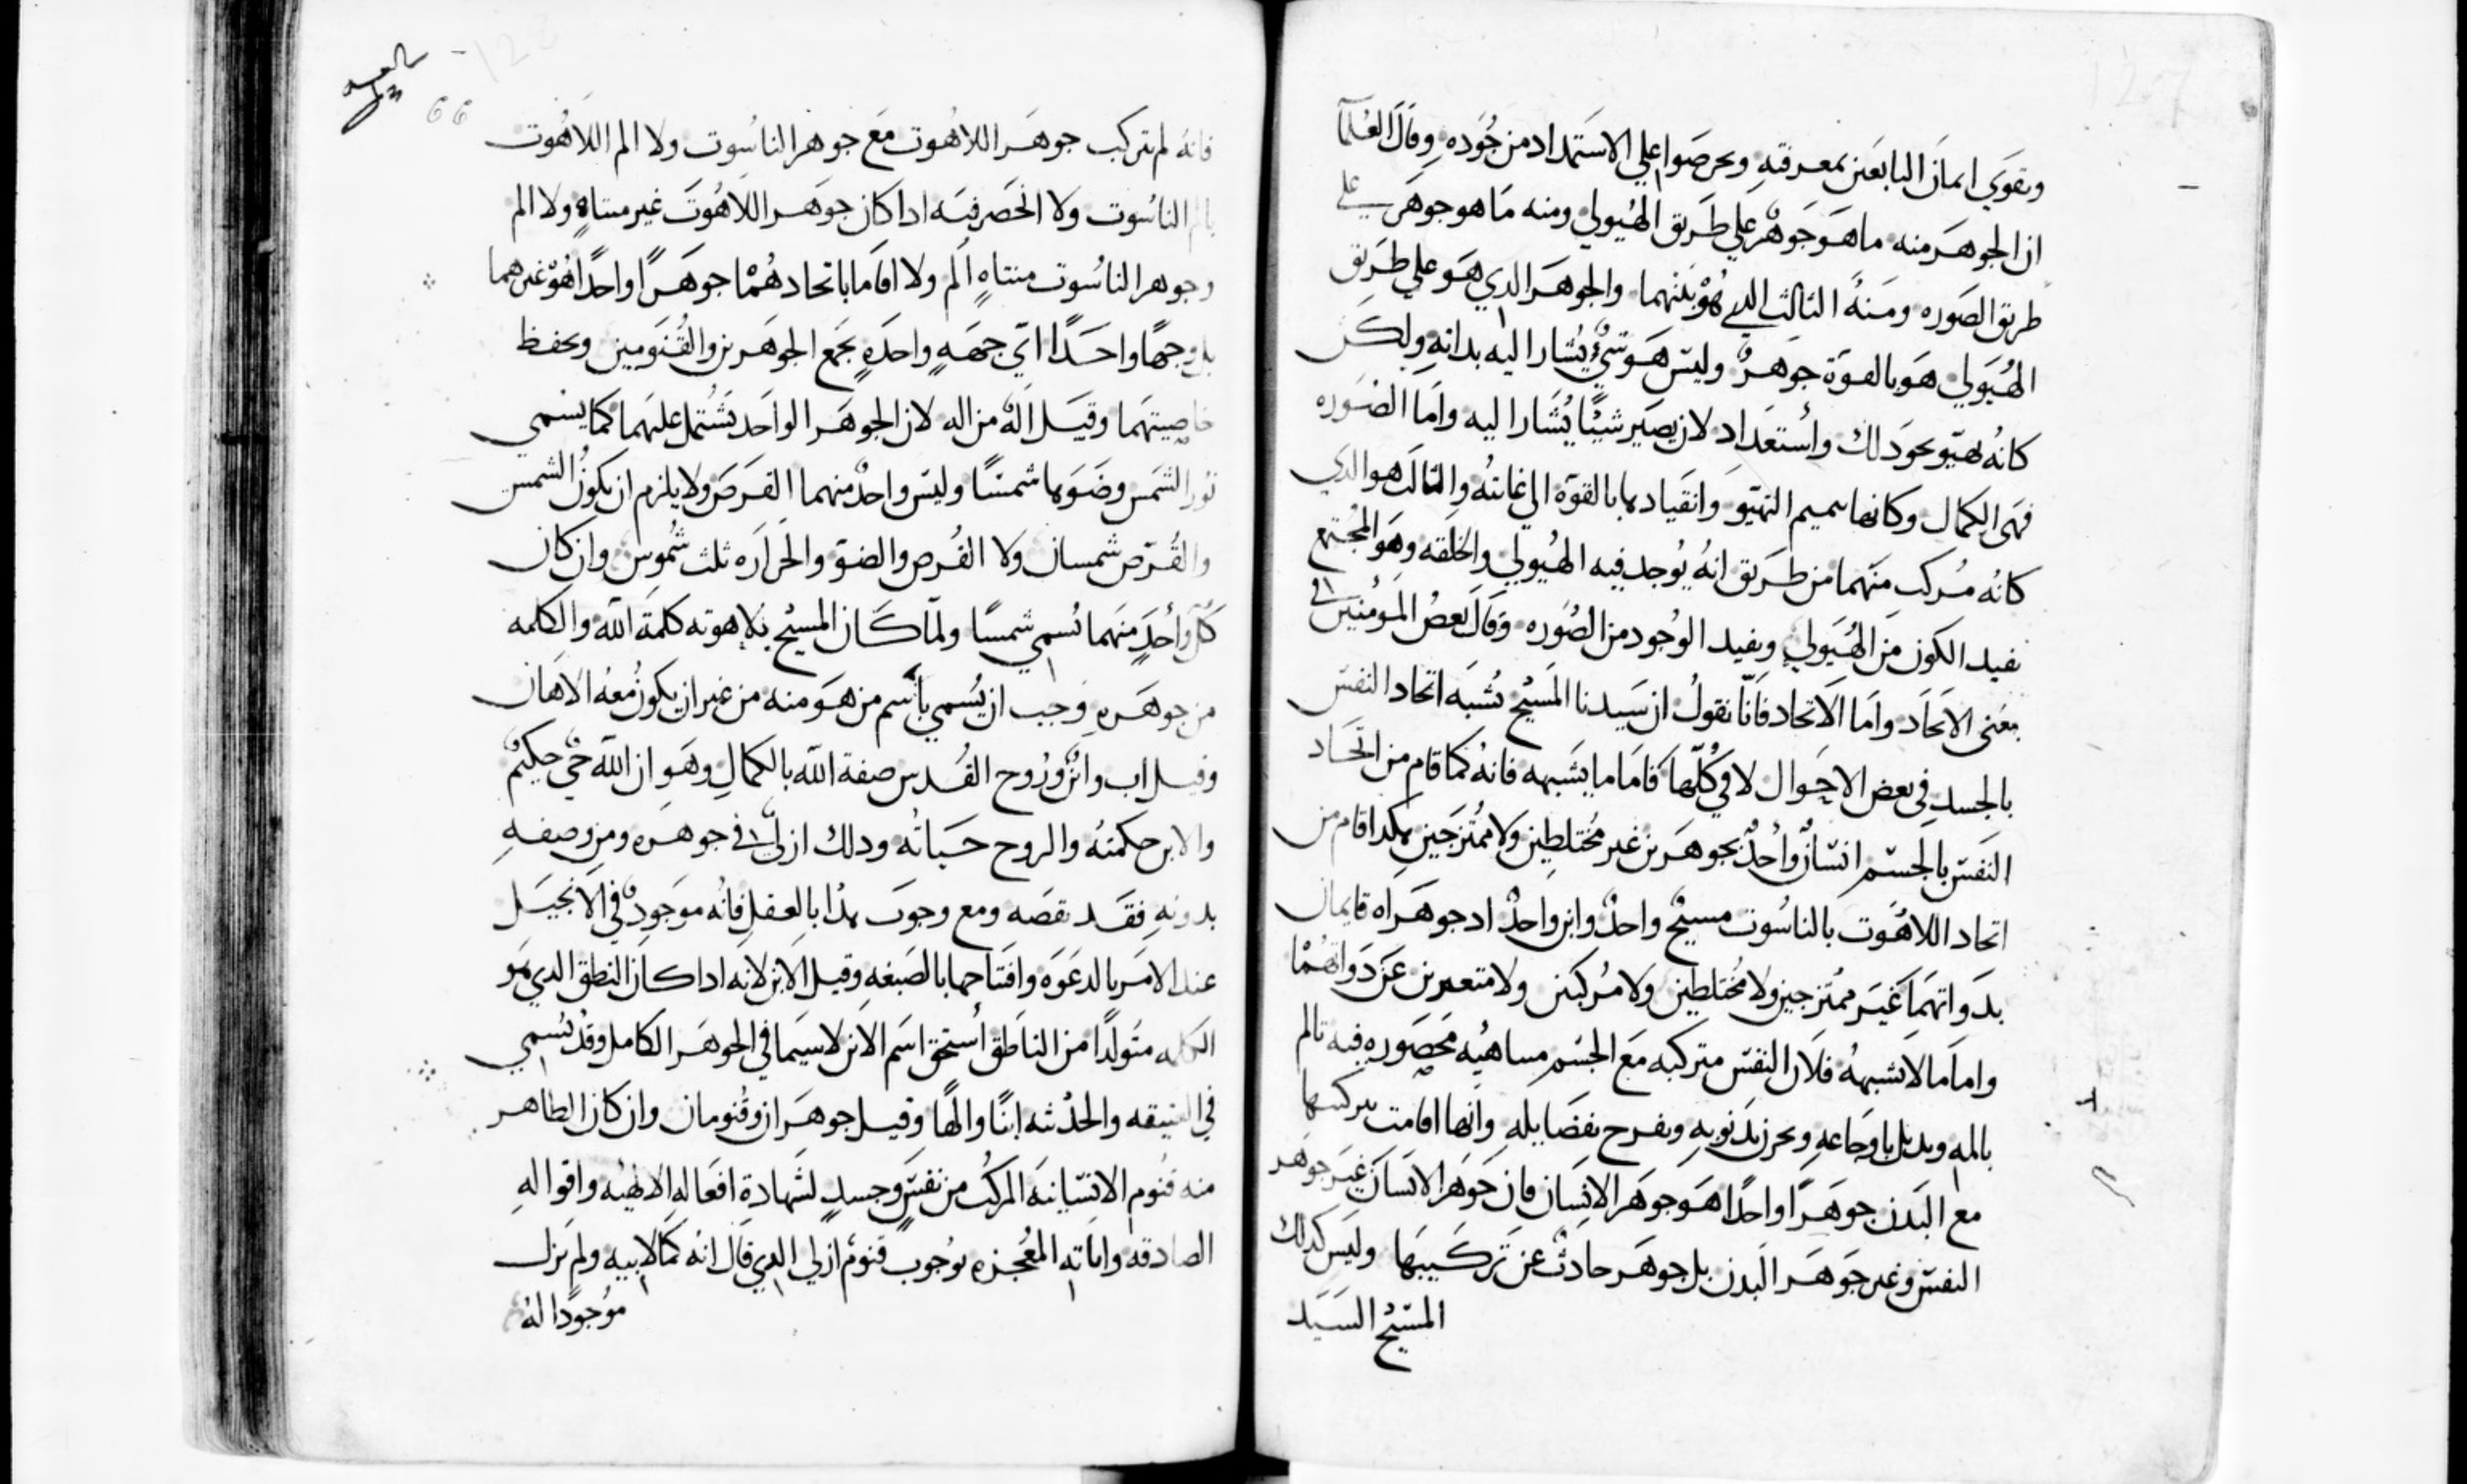 وتقوي ايمان التابعين بمعرفته وتحرصوا علي الاستمداد من جوده وقال العلما
ان الجوهر منه ما هو جوهر علي طريق الهيولي ومنه ما هو جوهر علي
طريق الصوره ومنه الثالث الدي هو بينهما والجوهر الدي هو علي طريق
الهيولي هو بالقوة جوهر وليس هو شيء يشار اليه بداته ولكن
كانه تهيو نحو دلك واستعداد لان يصير شيئا يشار اليه واما الصوره
فهى الكمال وكانها تميم التهيو وانقيادها بالقوة الي غايته والثالث هو الدي
كانه مركب منهما من طريق انه يوجد فيه الهيولي والخلقه وهو المجتمع
يفيد الكون من الهيولي ويفيد الوجود من الصوره وقال بعض المومنين في
معنى الاتحاد واما الاتحاد فانا نقول ان سيدنا المسيح تشبه اتحاد النفس
بالجسد في بعض الاحوال لا في كلها فاما ما يشبهه فانه كما قام من اتحاد
النفس بالجسم انسان واحد بجوهرين غير مختلطين ولا ممتزجين هكدا قام من
اتحاد اللاهوت بالناسوت مسيح واحد وابن واحد اد جوهراه قايمان
بدواتهما غير ممتزجين ولا مختلطين ولا مركبين ولا متغيرين عن دواتهما
واما ما لا تشبهه فلان النفس متركبه مع الجسم متناهيه محصوره فيه تالم
بالمه وتدبل باوجاعه وتحزن بدنوبه وتفرح بفضايله وانها اقامت بتركيبها
مع البدن جوهرا واحدا هو جوهر الانسان فان جوهر الانسان غير جوهر
النفس وغير جوهر البدن بل جوهر حادث عن تركيبها وليس كدلك
المسيح السيد
66
فانه لم تتركب جوهر اللاهوت مع جوهر الناسوت ولا الم اللاهوت
بالم الناسوت ولا انحصر فيه ادا كان جوهر اللاهوت غير متناه ولا الم
وجوهر الناسوت متناه الم ولا اقاما باتحادهما جوهرا واحدا هو غيرهما
بل وجها واحدا اي جهه واحده تجمع الجوهرين والقنومين وتحفظ
خاصيتهما وقيل اله من اله لان الجوهر الواحد تشتمل عليهما كما يسمي
نور الشمس وضوها شمسا وليس واحد منهما القرص ولا يلزم ان يكون الشمس
والقرص شمسان ولا القرص والضو والحراره ثلث شموس وان كان
كل واحد منهما تسمي شمسا ولما كان المسيح بلاهوته كلمة الله والكلمه
من جوهره وجب ان يسمي باسم من هو منه من غير ان يكون معه الاهان
وقيل اب وابن وروح القدس صفة الله بالكمال وهو ان الله حي حكيم
والابن حكمته والروح حياته ودلك ازلي في جوهره ومن وصفه
بدونه فقد نقصه ومع وجوب هدا بالعقل فانه موجود في الانجيل
عند الامر بالدعوه وافتتاحها بالصبغه وقيل الابن لانه ادا كان النطق الدي هو
الكلمه متولدا من الناطق استحق اسم الابن لا سيما في الجوهر الكامل وقد تسمي
في العتيقه والحديثه ابنا والها وقيل جوهران وقنومان وان كان الظاهر
منه قنوم الانسانيه المركب من نفس وجسد لشهادة افعاله الالاهيه واقواله
الصادقه واياته المعجزه بوجوب قنوم ازلي الدي قال انه كما لابيه ولم يزل
موجودا له